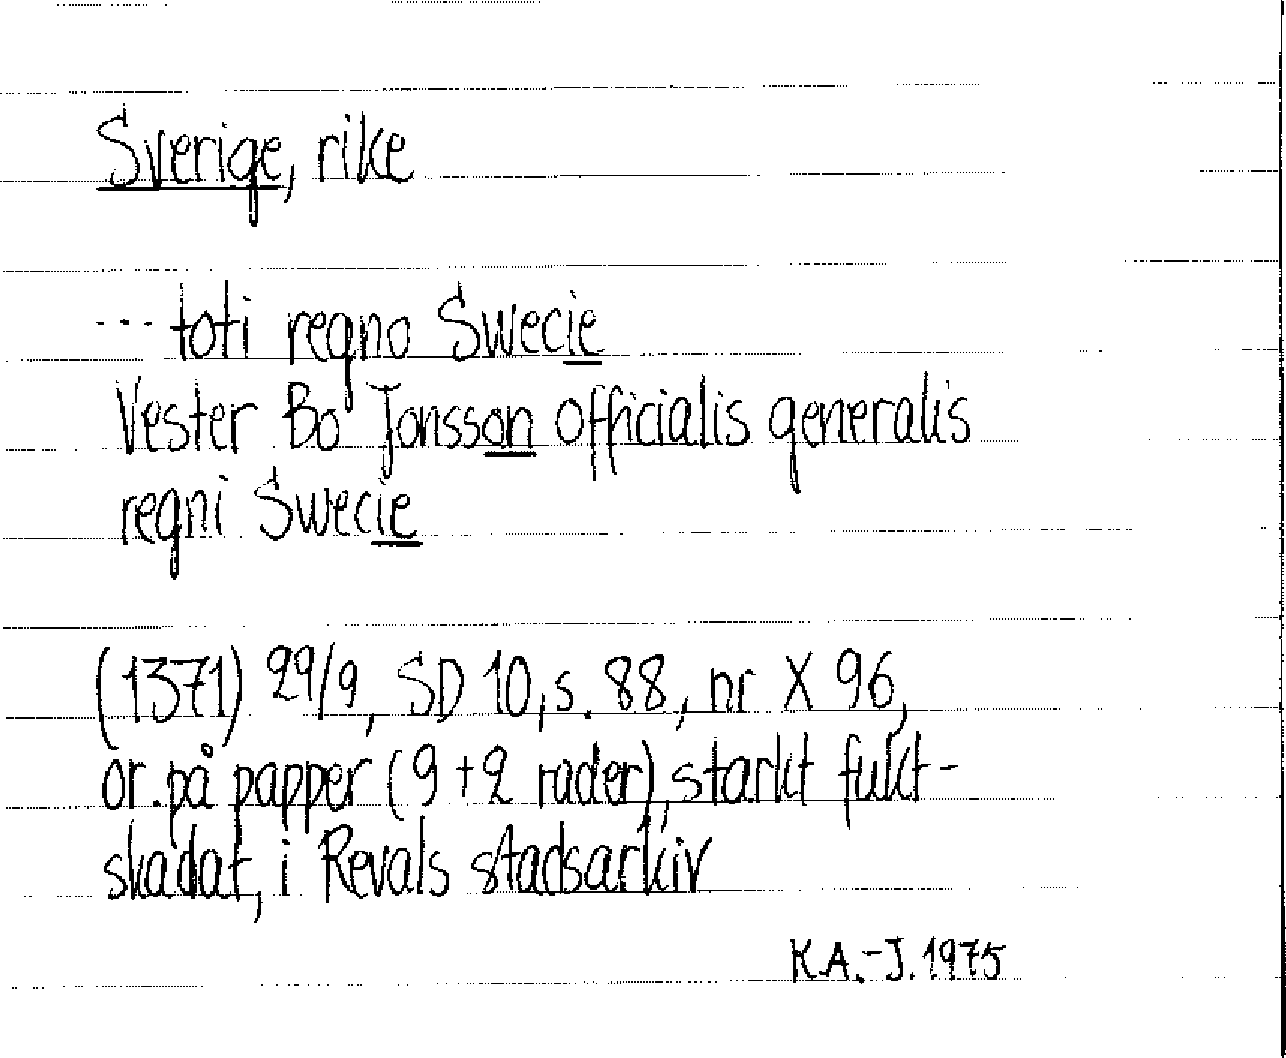 Sverige, rike
--- toti regno Swecie
Vester Bo Jonsson officialis generalis
regni Swecie
(1371) 29/9, SD 10, s. 88, nr X 96,
or. på papper (9+2 rader), starkt fukt-
skadat, i Revals stadsarkiv
K.A.-J. 1975